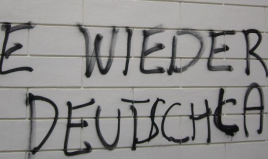 E WIEDER
DEUTSCHLA